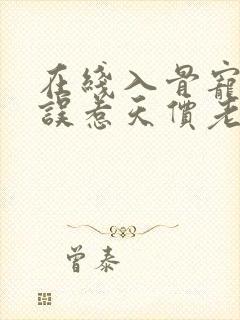 在綫入骨寵
誤惹天價老
曾泰